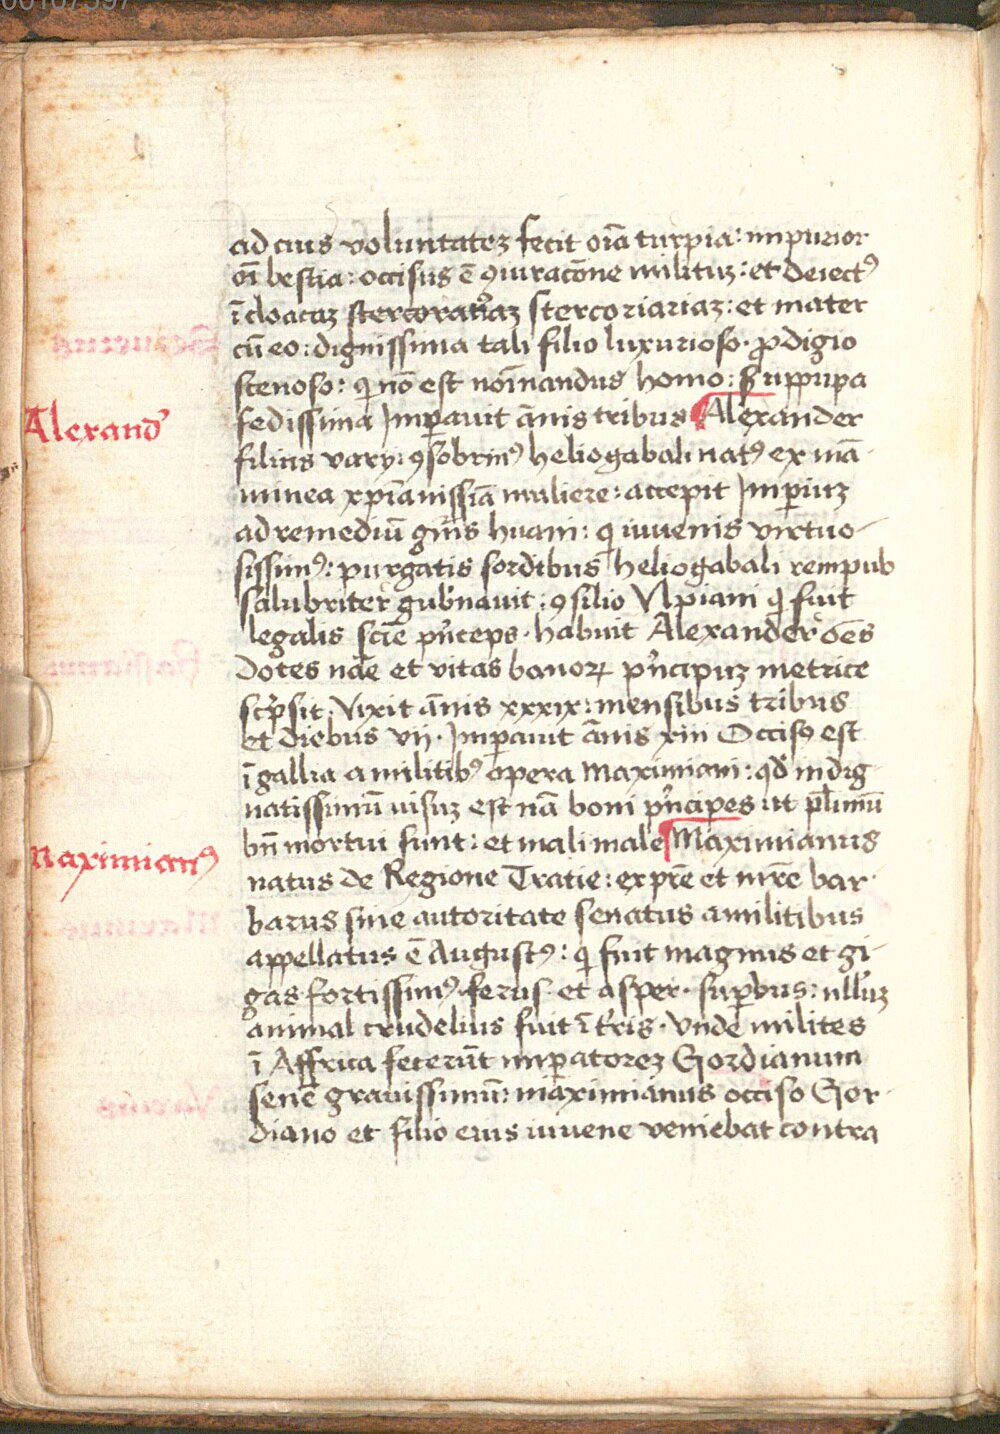 ad eius voluntatez fecit oīa turpia: impurior
oī bestia: occisus ē ꝯiuracōne milituz: et deiectꝰ
ī cloacaz stercoriariaz: et mater
cū eo: dignissima tali filio luxurioso· ꝓdigio
scenoso: qͥ nō est noīnandus homo: sꝫ uppupa
fedissima Imꝑauit ānis tribus Alexander
Alexandꝰ
filius vary: ꝯsobrinꝰ heliogabali natꝰ ex mā-
minea xp̄ianissīa muliere: accepit Imꝑiuz
ad remediū gn̄is huāni: qͥ iuvenis virtuo-
sissimꝰ: purgatis sordibus heliogabali rempub
salubriter gub̄nauit: ꝯsilio Vlpiani qͥ fuit
legalis sciē pͥnceps· habuit Alexander oēs
dotes nāe et vitas bonoꝝ pͥncipuz metrice
scͥpsit· Vixit ānis xxxix: mensibus tribus
et diebus vij· Imꝑauit ānis xiii Occisꝰ est
ī gallia a militibꝰ opera Maximiani: qd̄ indig-
natissimū uisuz est nā boni pͥncipes ut pl̄imū
bn̄ mortui sunt: et mali male Maximianus
Maximianꝰ
natus de Regione Tratie: ex pr̄e et mr̄e bar-
barus sine autoritate senatus a militibus
appellatus ē Augustꝰ: qͥ fuit magnus et gi-
gas fortissimꝰ· ferus· et asper· suꝑbus: nullūz
animal crudelius fuit ī tr̄is· Vnde milites
ī Affrica fecerūt imꝑatorez Gordianum
senē grauissimū: maximianus occiso Gor-
diano et filio eius iuuene veniebat contra